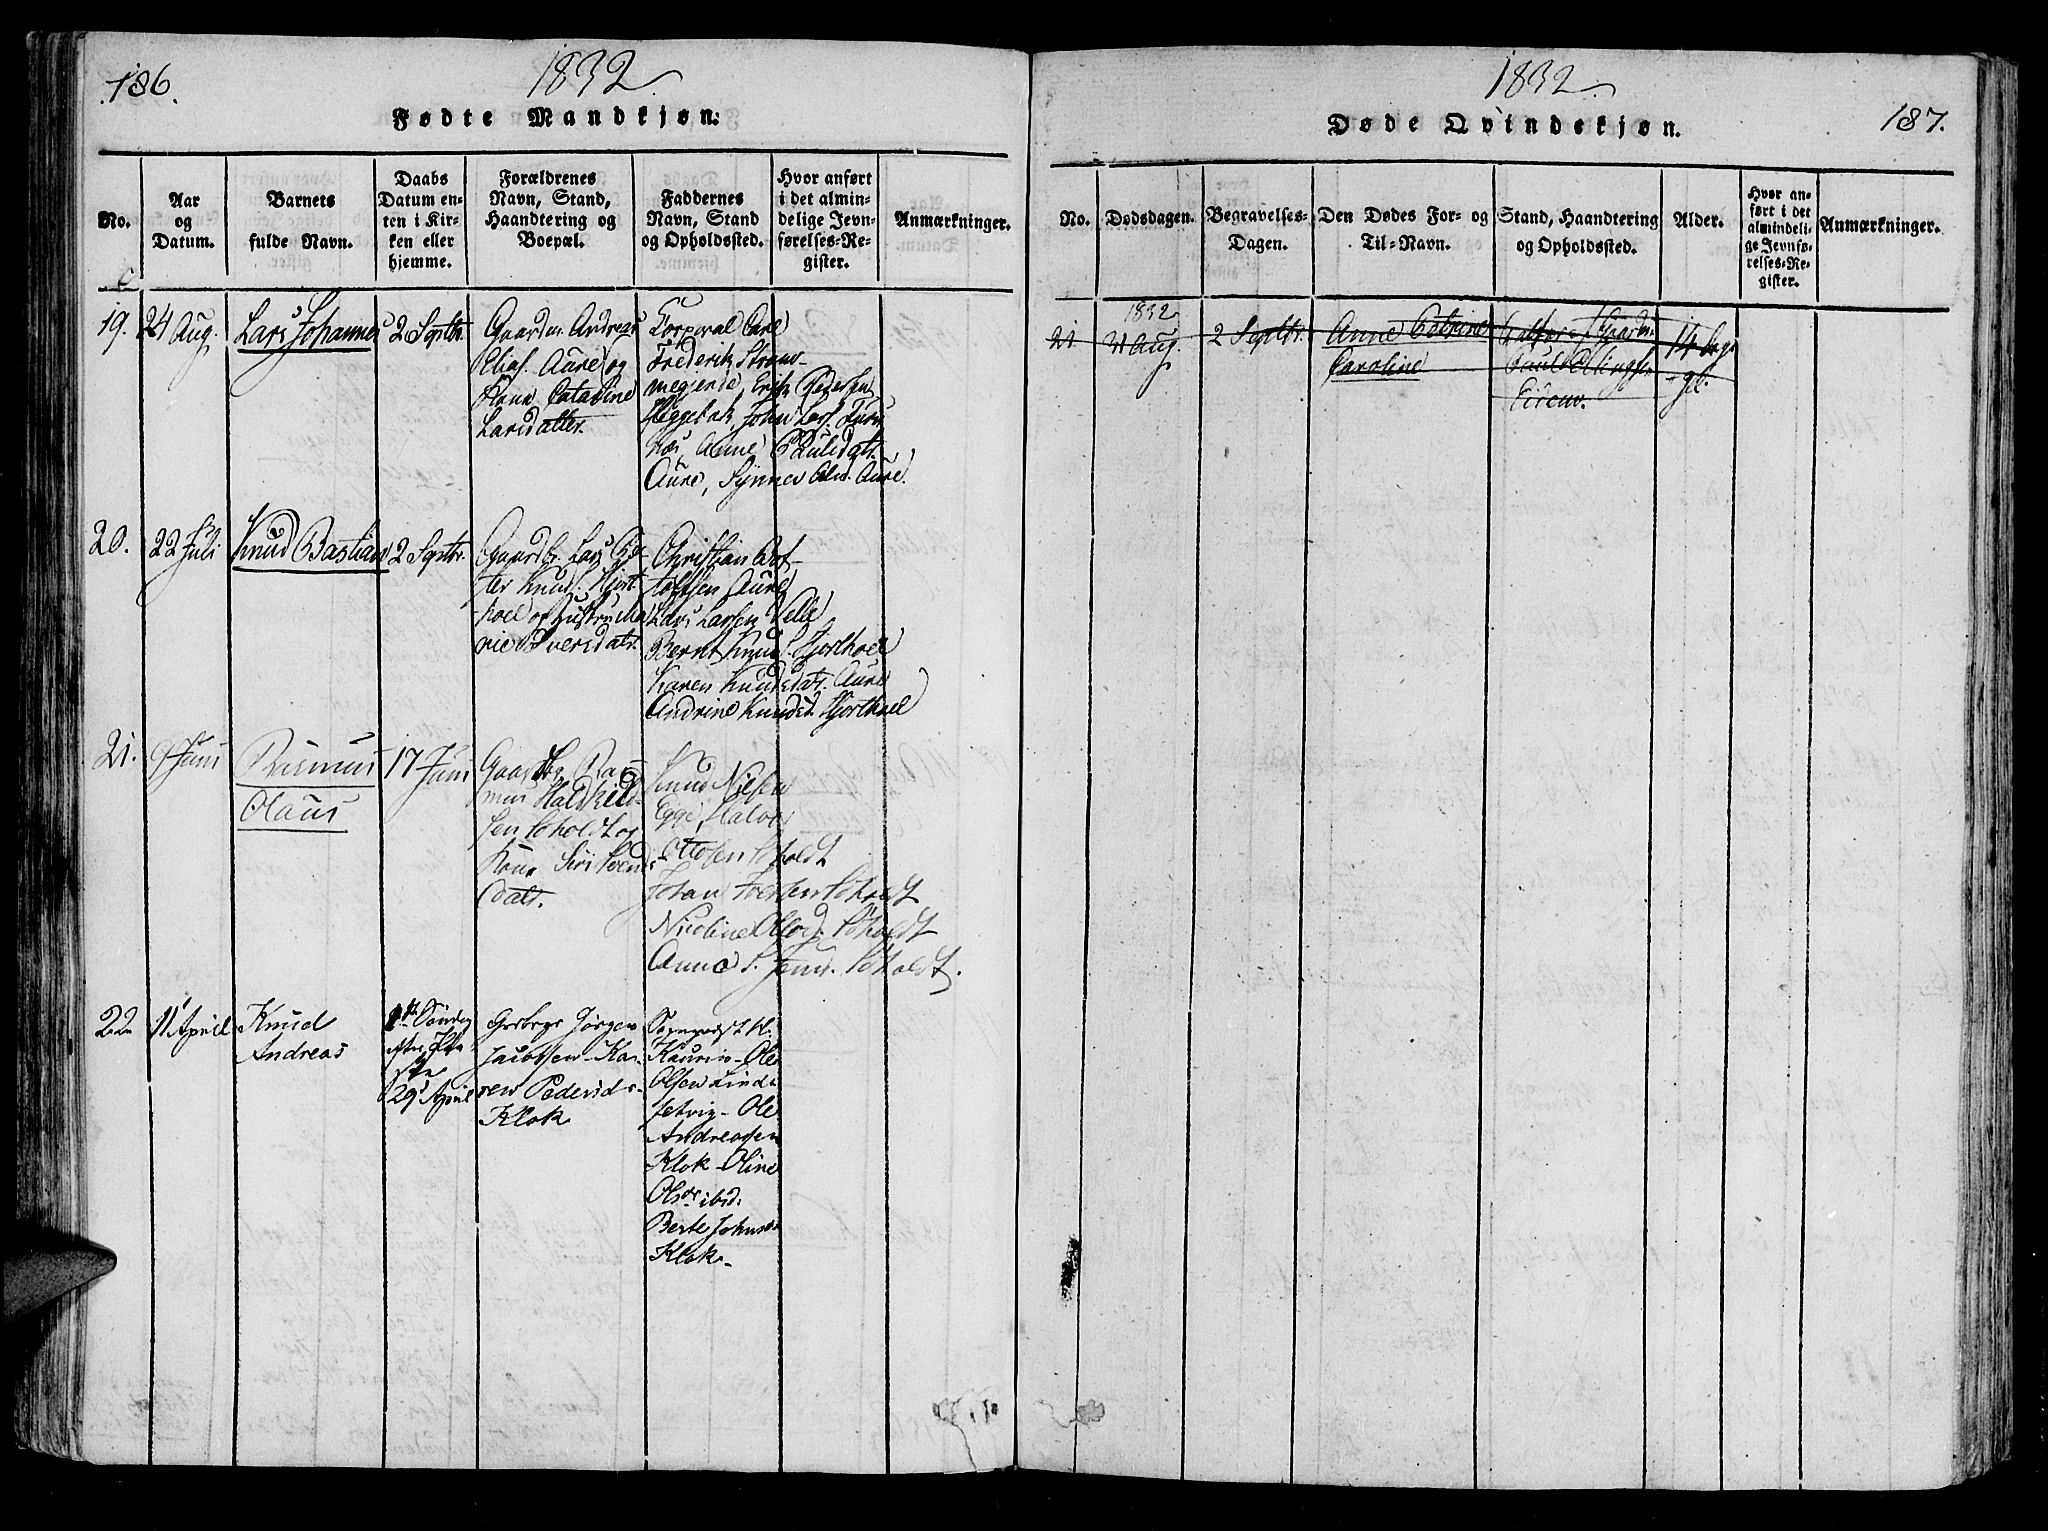 186.
1832
Fødte Mandkjøn.
No.
Aar og Datum.
Barnets fulde Navn.
Daabs Datum enten i Kirken eller hjemme.
Forældrenes Navn, Stand, Haandtering og Boepæl.
Faddernes Navn, Stand og Opholdssted.
Hvor anført i det almindelige Jevnførelses-Register.
Anmærkninger.
19.
24 Aug.
Lars Johannes
2 Septbr.
Gaardm. Andreas
Elias. Aure og
Kone Cataline
Larsdatter.
Corporal Carl
Frederik Strøm-
megjende, Erik Pedersen
Heggebak, John Lars.
Anne Paulsdatr.
Aure, Synnev Aure.
20.
22 Juli
Knud Bastian
2 Septbr.
Gaardbr. Lars Pe-
ter Knuds. Hjort-
hoel og Hustru Ma
rie Iversdatr.
Christian
Aure
Lars Larsen Velle
Bernt Knuds. Hjorthoel
Karen Knudsdatr. Aure
Andrine Knudsd. Hjorthoel
21.
9 Juni
Rasmus
Olaus
17 Juni
Gaardbr. Ras-
mus Haldkild-
sen Søholdt og
Kone Siri Svends
datr.
Knud Nilsen
Egge, Halvor
Ottosen Søholdt
Johan Iversen Søholdt
Nicoline Olsd. Søholdt
Anne S. Jens. Søholdt.
22
11 April
Knud
Andreas
1ste Søndag
efter Paa
ske
29 April
Grbrgr Jørgen
Jacobsen - Ka-
ren Pedersd.
Klok
Sognepræst H.
Kaurin - Ole
Olsen Lind-
setvig - Ole
Andreasen
Klok - Oline
Olsdr ibid:
Berte Johnsd.
Klok -
1832
Døde Qvindekjøn.
187.
No.
Dødsdagen.
Begravelses-Dagen.
Den Dødes For- og Til-Navn.
Stand, Haandtering og Opholdssted.
Alder.
Hvor anført i det almindelige Jevnførelses-Register.
Anmærkninger.
1832
21.
21 Aug.
2 Septbr.
Anne Petrine
Caroline
Datter af Gaardm.
Paul Ellingsen
14 Dage
gl.